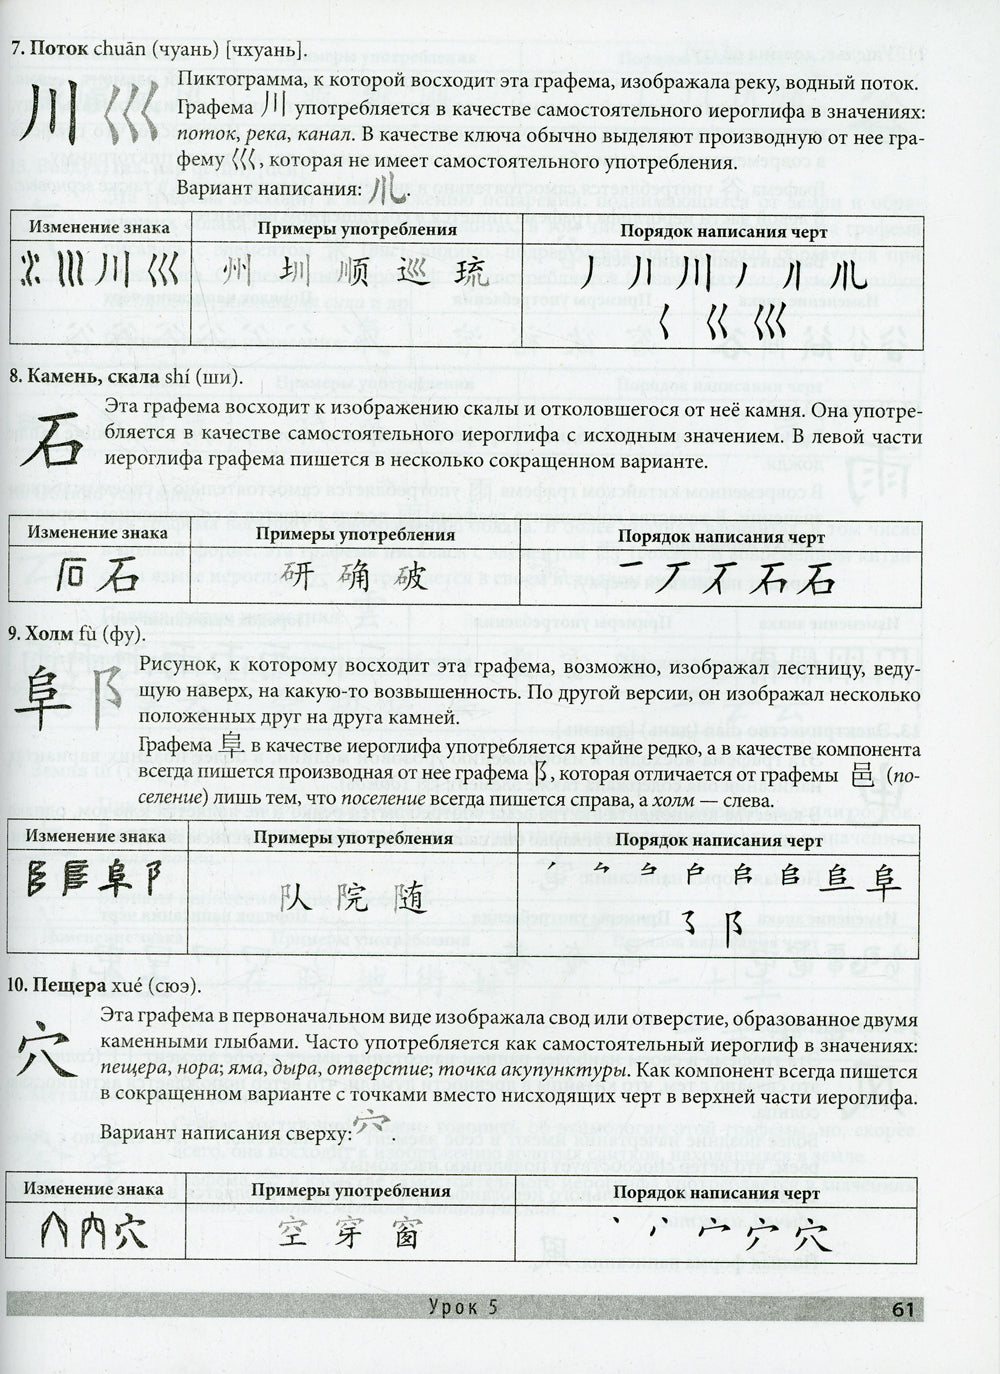 7. Поток chuān (чуань) [чхуань].
川 巛
Пиктограмма, к которой восходит эта графема, изображала реку, водный поток.
Графема 川 употребляется в качестве самостоятельного иероглифа в значениях:
поток, река, канал. В качестве ключа обычно выделяют производную от нее гра-
фему 巛, которая не имеет самостоятельного употребления.
Вариант написания:
Изменение знака Примеры употребления Порядок написания черт
川 巛 州 圳 顺 巡 琉 丿 川
巛
8. Камень, скала shí (ши).
石
Эта графема восходит к изображению скалы и отколовшегося от неё камня. Она употре-
бляется в качестве самостоятельного иероглифа с исходным значением. В левой части
иероглифа графема пишется в несколько сокращенном варианте.
Изменение знака Примеры употребления Порядок написания черт
石 研 确 破 一 丆 石 石
9. Холм fù (фу).
阜 阝
Рисунок, к которому восходит эта графема, возможно, изображал лестницу, веду-
щую наверх, на какую-то возвышенность. По другой версии, он изображал несколько
положенных друг на друга камней.
Графема 阜 в качестве иероглифа употребляется крайне редко, а в качестве компонента
всегда пишется производная от нее графема阝, которая отличается от графемы 邑 (по-
селение) лишь тем, что поселение всегда пишется справа, а холм — слева.
Изменение знака Примеры употребления Порядок написания черт
阜 阝 队 院 随 阜
阝
10. Пещера xué (сюэ).
穴
Эта графема в первоначальном виде изображала свод или отверстие, образованное двумя
каменными глыбами. Часто употребляется как самостоятельный иероглиф в значениях:
пещера, нора; яма, дыра, отверстие; точка акупунктуры. Как компонент всегда пишется
в сокращенном варианте с точками вместо нисходящих черт в верхней части иероглифа.
Вариант написания сверху:
Изменение знака Примеры употребления Порядок написания черт
穴 空 穿 窗 丶 宀 穴
Урок 5 61